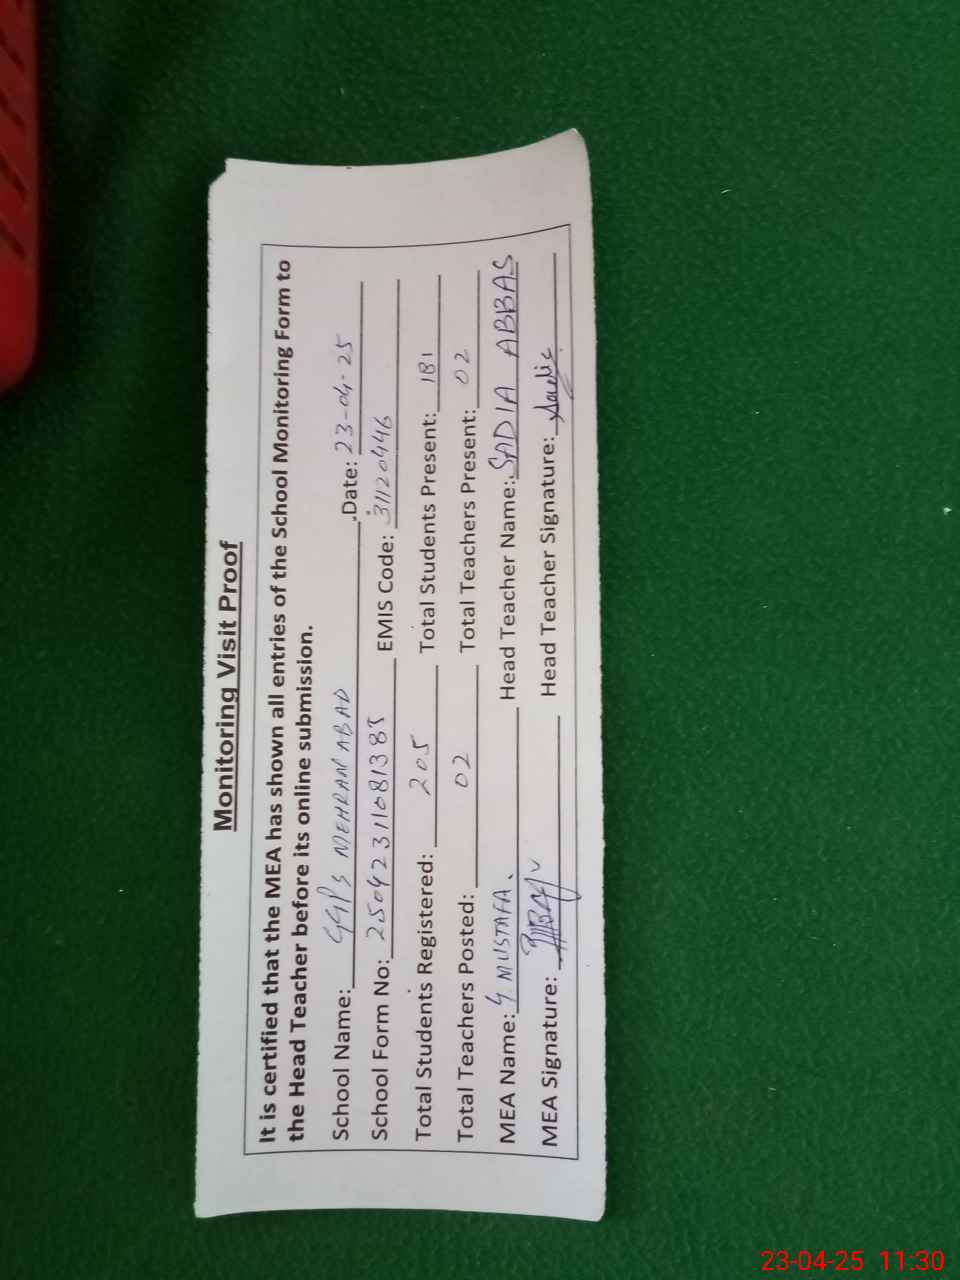 Monitoring Visit Proof
It is certified that the MEA has shown all entries of the School Monitoring Form to
the Head Teacher before its online submission.
School Name: GGPS MEHRAN ABAD Date: 23-04-25
School Form No: 25042311081385 EMIS Code: 31120446
Total Students Registered: 205 Total Students Present: 181
Total Teachers Posted: 02 Total Teachers Present: 02
MEA Name: G MUSTAFA. Head Teacher Name: SADIA ABBAS
MEA Signature: Head Teacher Signature: Sadia
23-04-25 11:30